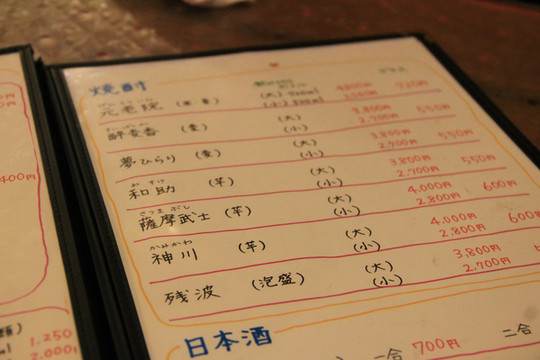 焼酎
元老院 (米・麦) (大) 720円
(小)
酔麦香 (麦) (大) 3,800円 550円
(小) 2,700円
夢ひらり (麦) (大) 3,800円 550円
(小) 2,700円
みすけ
和助 (芋) (大) 3,800円 550円
(小) 2,700円
さつまぶし
薩摩武士 (芋) (大) 4,000円 600円
(小) 2,800円
かみかわ
神川 (芋) (大) 4,000円 600円
(小) 2,800円
残波 (泡盛) (大) 3,800円
(小) 2,700円
日本酒
一合 700円 二合
400円
1,250
2,000